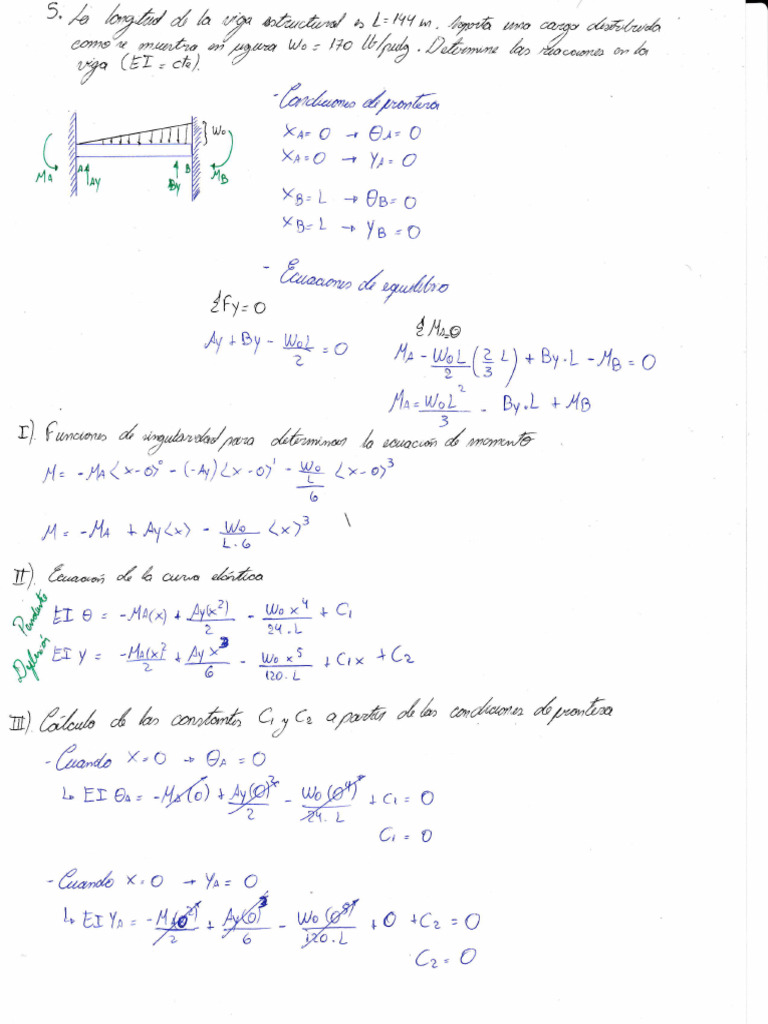 5. La longitud de la viga estructural es L = 144 in. Soporta una carga distribuida
como se muestra en figura W₀ = 170 lb/pulg. Determine las reacciones en la
viga (EI = cte).
W₀
MA
A
AY
By
B
MB
- Condiciones de frontera
XA=0 → θA=0
XA=0 → YA=0
XB=L → θB=0
XB=L → YB=0
- Ecuaciones de equilibrio
ΣFy=0
Ay + By - W₀L/2 = 0
ΣMA=0
MA - W₀L/2 (2/3 L) + By·L - MB = 0
MA = W₀L²/3 - By·L + MB
I). Funciones de singularidad para determinar la ecuación de momento
M = -MA<x-0>⁰ - (-Ay)<x-0>¹ - W₀/L/6 <x-0>³
M = -MA + Ay<x> - W₀/L·6 <x>³
II). Ecuación de la curva elástica
Pendiente
EI θ = -MA(x) + Ay(x²)/2 - W₀x⁴/24·L + C₁
Deflexión
EI Y = -MA(x)²/2 + Ay x³/6 - W₀x⁵/120·L + C₁x + C₂
III). Cálculo de las constantes C₁ y C₂ a partir de las condiciones de frontera
- Cuando X=0 → θA=0
↳ EI θA = -MA(0) + Ay(0)²/2 - W₀(0⁴)/24·L + C₁ = 0
C₁ = 0
- Cuando X=0 → YA=0
↳ EI YA = -MA(0²)/2 + Ay(0)³/6 - W₀(0⁵)/120·L + 0 + C₂ = 0
C₂ = 0